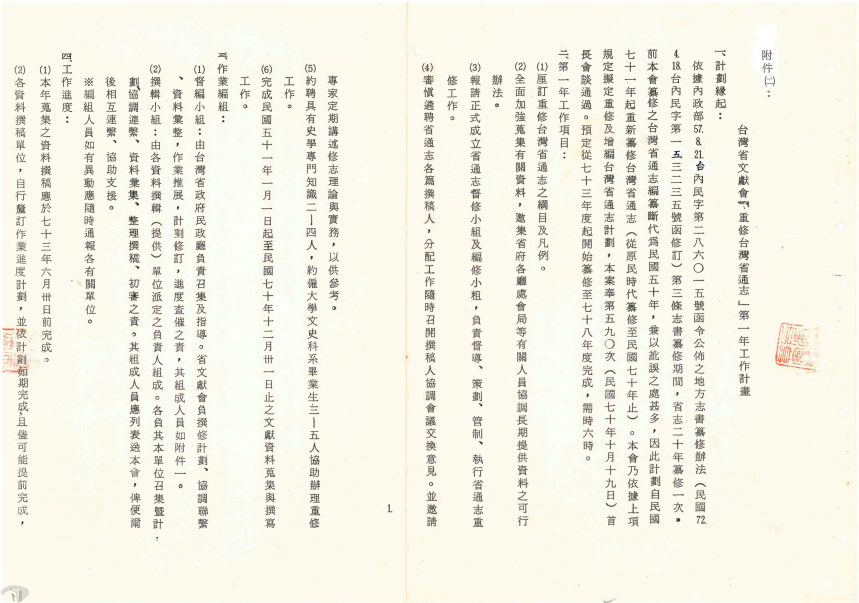 附件㈡：
台灣省文獻會「重修台灣省通志」第一年工作計畫
一、計劃緣起：
依據內政部57.8.21.台內民字第二八六〇一五號函令公佈之地方志書纂修辦法（民國72.
4.18.台內民字第一五三二三五號函修訂）第三條志書纂修期間，省志二十年纂修一次。
前本會纂修之台灣省通志編纂斷代爲民國五十年，兼以訛誤之處甚多，因此計劃自民國
七十一年起重新纂修台灣省通志（從原民時代纂修至民國七十年止）。本會乃依據上項
規定擬定重修及增編台灣省通志計劃，本案奉第五九〇次（民國七十年十月十九日）首
長會談通過。預定從七十三年度起開始纂修至七十八年度完成，需時六時。
二、第一年工作項目：
⑴厘訂重修台灣省通志之綱目及凡例。
⑵全面加強蒐集有關資料，邀集省府各廳處會局等有關人員協調長期提供資料之可行
辦法。
⑶報請正式成立省通志督修小組及編修小粗，負責督導、策劃、管制、執行省通志重
修工作。
⑷審愼遴聘省通志各篇撰稿人，分配工作隨時召開撰稿人協調會議交換意見。並邀請
1.
專家定期講述修志理論與實務，以供參考。
⑸約聘具有史學專門知識二－四人，約僱大學文史科系畢業生三－五人協助辦理重修
工作。
⑹完成民國五十一年一月一日起至民國七十年十二月卅一日止之文獻資料蒐集與撰寫
工作。
三、作業編組：
⑴督編小組：由台灣省政府民政廳負責召集及指導。省文獻會負撰修計劃、協調聯繫
、資料彙整，作業推展，計劃修訂，進度查催之責，其組成人員如附件一。
⑵撰輯小組：由各資料撰輯（提供）單位派定之負責人組成。各負其本單位召集暨計
劃、協調連繫、資料彙集、整理撰稿、初審之責。其組成人員應列表送本會，俾便爾
後相互連繫、協助支援。
※編組人員如有異動應隨時通報各有關單位。
四、工作進度：
⑴本年蒐集之資料撰稿應於七十三年六月卅日前完成。
⑵各資料撰稿單位，自行釐訂作業進度計劃，並依計劃如期完成，且儘可能提前完成，